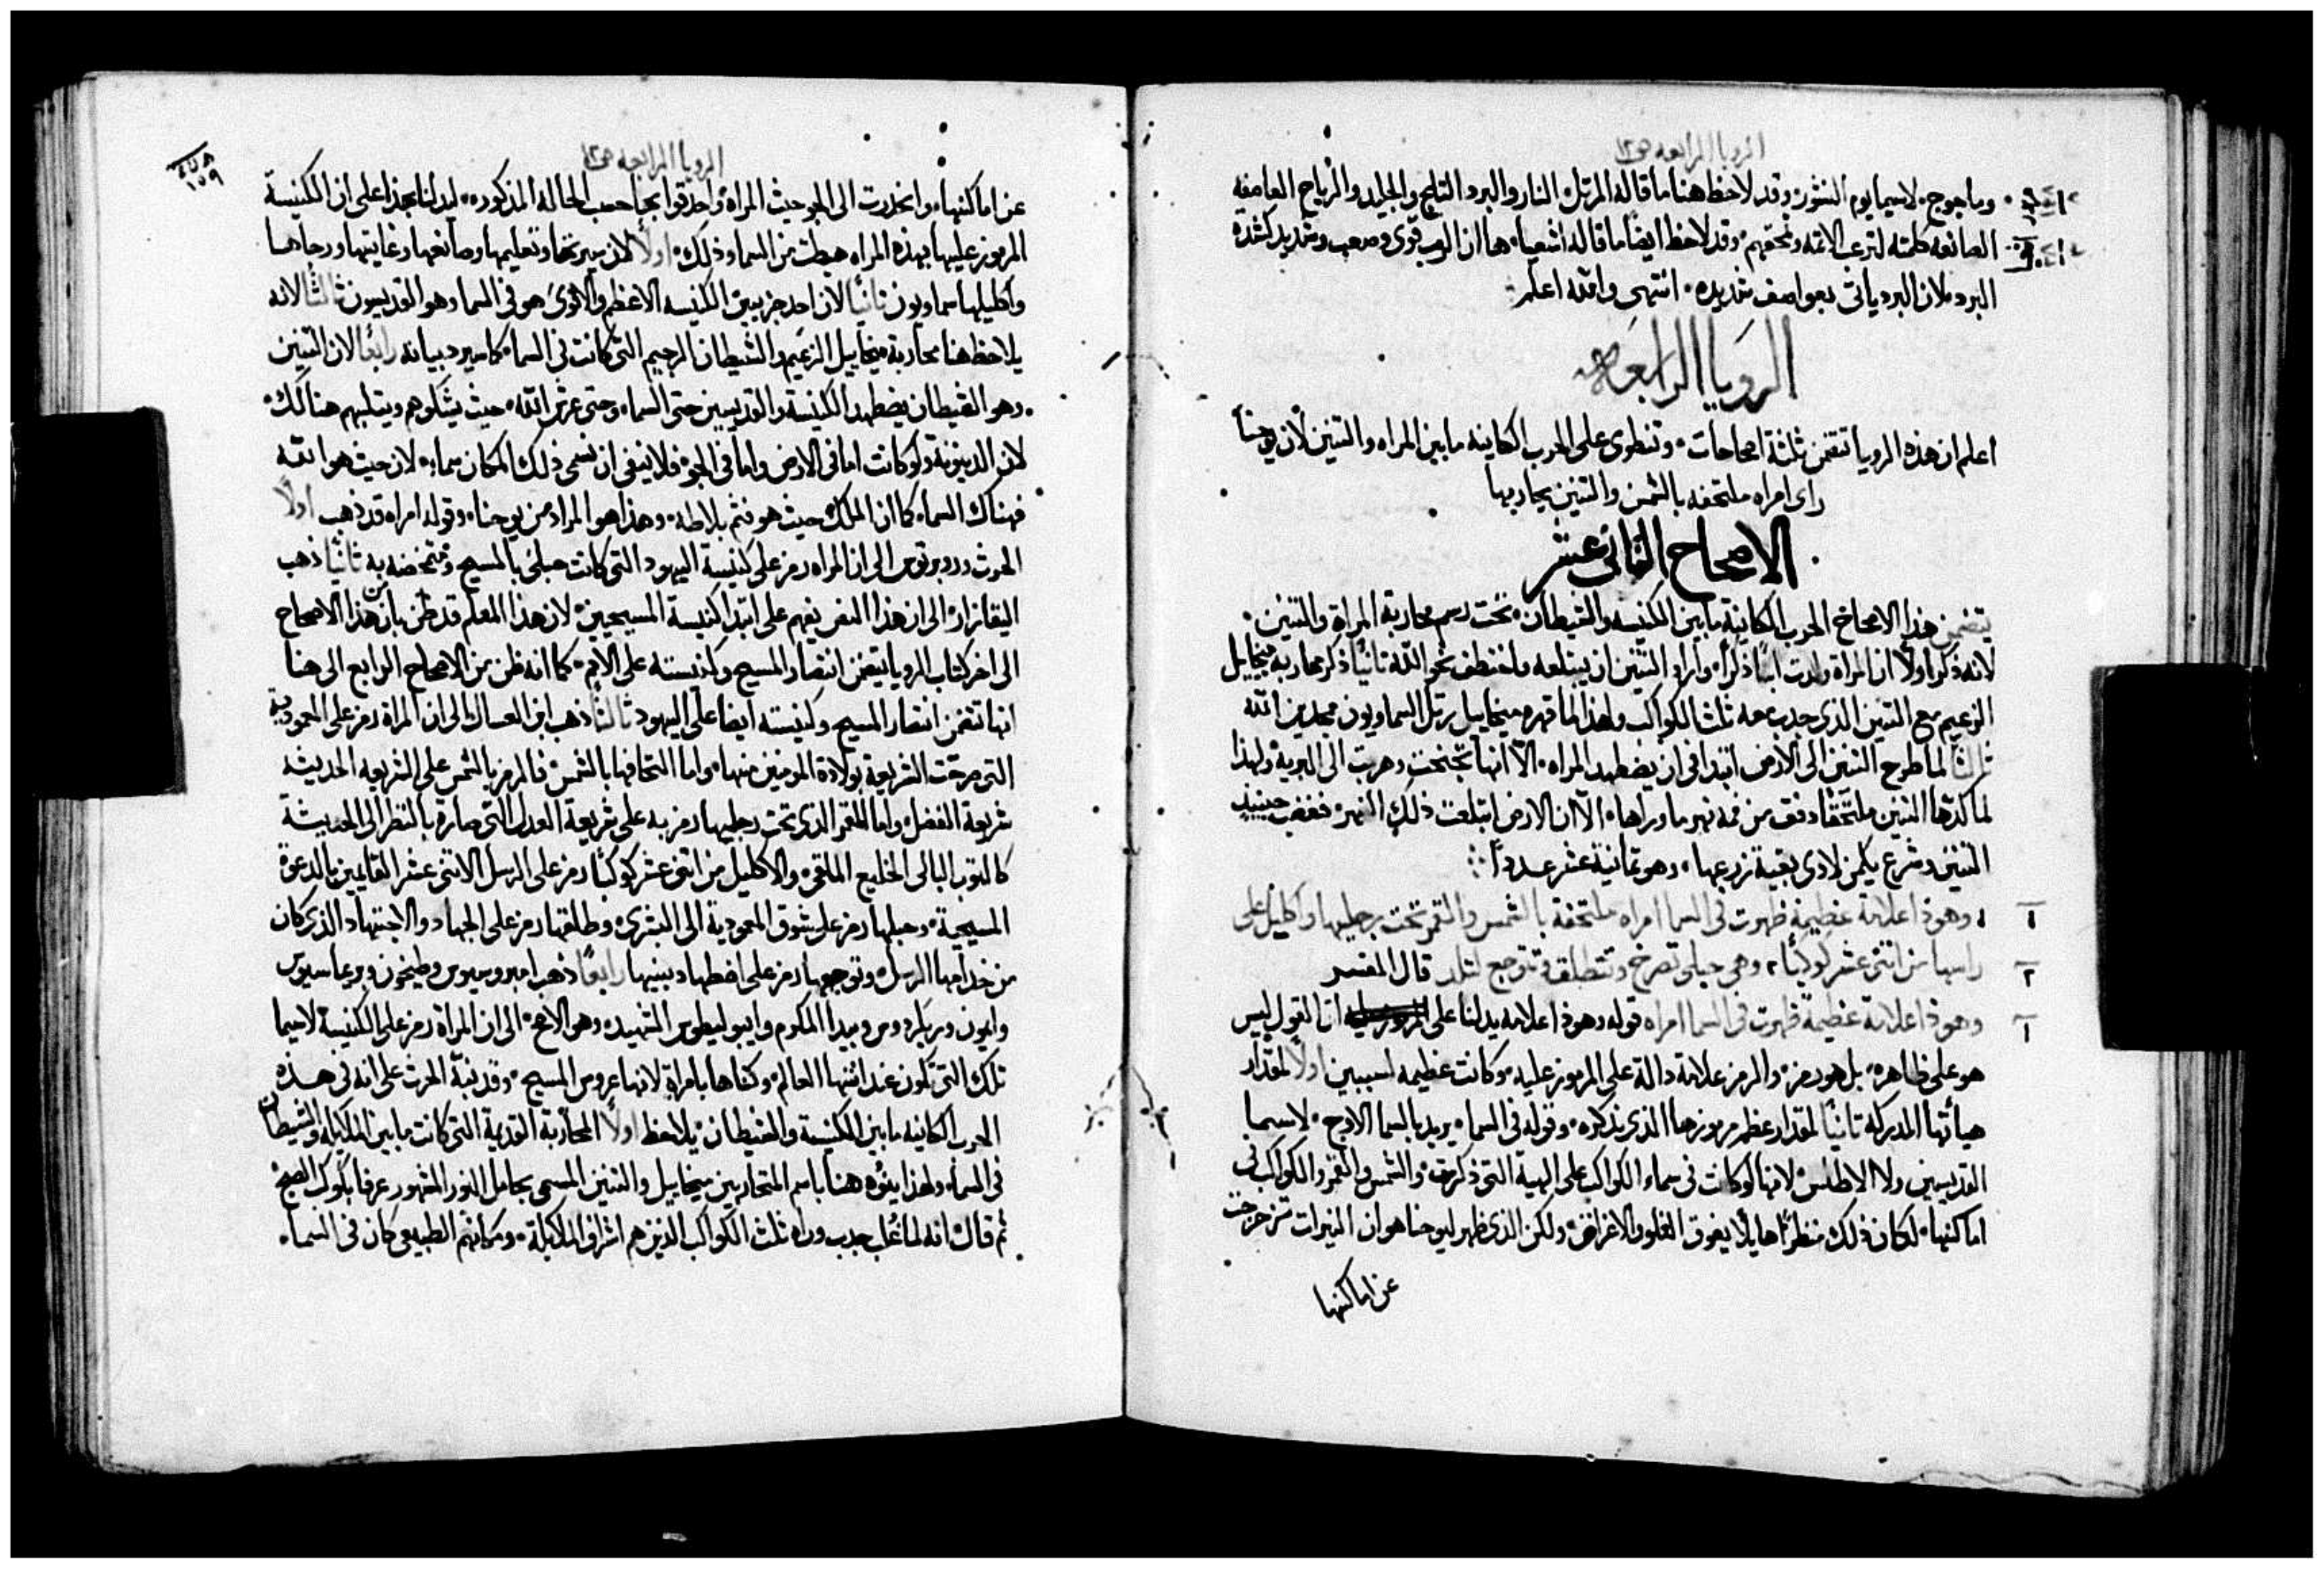 الرويا الرابعه ص١٢
وماجوج لاسيما يوم النشور وقد لاحظ هنا ما قاله المرتل النار والبرد الثلج والجليد والرياح العاصفه
الصانعه كلمته لترعب الاثمه وتمحقهم وقد لاحظ ايضا ما قاله اشعيا ها ان الرب قوى وصعب وشديد كشدة
البرد لان البرد ياتى بعواصف شديده انتهى والله اعلم
الرويا الرابعه
اعلم ان هذه الرويا تتضمن ثلثة اصحاحات وتنطوى على الحرب الكاينه ما بين المراه والتنين لان يوحنا
راى امراه ملتحفه بالشمس والتنين يحاربها
الاصحاح الثانى عشر
يتضمن هذا الاصحاح الحرب الكاينة ما بين الكنيسه والشيطان تحت رسم محاربة المراة والتنين
لانه ذكر اولا ان المراة ولدت ابنا ذكرا واراد التنين ان يبتلعه فاختطف نحو الله ثانيا ذكر محاربة ميخاييل
الزعيم مع التنين الذى جدب معه ثلث الكواكب ولهذا لما قهره ميخاييل رتل السماويون ممجدين الله
ثالثا لما طرح التنين الى الارض ابتدا فى ان يضطهد المراه الا انها تجنحت وهربت الى البرية ولهذا
لما كدها التنين ملتحقا دفق من فمه نهر ما وراها الا ان الارض ابتلعت ذلك النهر فغضب حينيد
التنين وشرع يكمن لادى بقية زرعها وهو ثمانية عشر عددا
١ وهوذا علامة عظيمة ظهرت فى السما امراه ملتحفة بالشمس والقمر تحت رجليها واكليل على
٢ راسها من اثنى عشر كوكبا وهى حبلى تصرخ وتتطلق وتتوجع لتلد قال المفسر
١ وهوذا علامة عظيمة ظهرت فى السما امراه قوله وهوذا علامه يدلنا على ان القول ليس
هو على ظاهره بل هو رمز والرمز علامة دالة على المرموز عليه وكانت عظيمه لسببين اولا لمقدار
هياتها المدركه ثانيا لمقدار عظم مرموزها الذى نذكره وقوله فى السما يريد بالسما الاوج لاسما
القديسين ولا الاطلس لانها لو كانت فى سماء الكواكب على الهية التى ذكرت والشمس والقمر والكواكب فى
اماكنها لكان ذلك منظرا هايلا يفوق الغلو والاغراض ولكن الذى ظهر ليوحنا هو ان النيرات تزحزحت
عن اماكنها
الرويا الرابعه ص١٢
١٥٩
عن اماكنها وانحدرت الى الجو حيث المراه واحدقوا بها حسب الحاله المذكوره ليدلنا بهذا على ان الكنيسة
المرموز عليها بهذه المراه هبطت من السما وذلك اولا لان سيرتها وتعليمها وصانعها وغايتها ورجاها
واكليلها سماويون ثانيا لان احد جزيين الكنيسه الاعظم والاقوى هو فى السما وهو القديسون ثالثا لانه
يلاحظ هنا محاربة ميخاييل الزعيم والشيطان الرجيم التى كانت فى السما كما سيرد بيانه رابعا لان التنين
وهو الشيطان يضطهد الكنيسة والقديسين حتى السماء وحتى عرش الله حيث يشكوهم ويثلبهم هنالك
لان الدينونة ولو كانت اما فى الارض واما فى الجو فلا ينفى ان نسمى ذلك المكان سماء لان حيث هو الله
فهناك السماء كما ان الملك حيث هو فثم بلاطه وهذا هو المراد من يوحنا وقوله امراه قد ذهب اولا
الحرث وروبرتوس الى ان المراه رمز على كنيسة اليهود التى كانت حبلى بالمسيح ومتمخضه به ثانيا ذهب
اليقازار الى ان هذا النص يفهم على ابتدا كنيسة المسيحيين لان هذا المعلم قد ظن بان من هذا الاصحاح
الى اخر كتاب الرويا يتضمن انتصار المسيح وكنيسته على الامم كما انه ظن من الاصحاح الرابع الى هنا
انها تتضمن انتصار المسيح وكنيسته ايضا على اليهود ثالثا ذهب ابن العسال الى ان المراة رمز على المعمودية
التى صرحت الشريعة بولادة المومنين منها واما التحافها بالشمس فالرمز بالشمس على الشريعه الحديثه
شريعة الفضل واما القمر الذى تحت رجليها رمز به على شريعة العدل التى صارة بالنظر الى الحديثة
كالثوب البالى الخليع الملقى والاكليل من اثنى عشر كوكبا رمز على الرسل الاثنى عشر القايمين بالدعوة
المسيحية وحبلها رمز على شوق المعمودية الى البشرى وطلقها رمز على الجهاد والاجتهاد الذى كان
من خدامها الرسل وتوجعها رمز على اضطهاد بنيها رابعا ذهب امبروسيوس وطيخون وبريماسيوس
وايمون وبيدا المكرم وايبوليطوس الشهيد وهو الاصح الى ان المراة رمز على الكنيسة لاسيما
تلك التى تكون عند انتها العالم وكناها بامراة لانها عروس المسيح وقد نبه الحرث على انه فى هذه
الحرب الكاينه ما بين الكنيسة والشيطان يلاحظ اولا المحاربة القديمة التى كانت ما بين الملايكه والشيطان
فى السماء ولهذا ينوه هنا باسم المتحاربين ميخاييل والتنين المسمى بحامل النور المشهور عرفا بكوكب الصبح
ثم قال انه لما غلب جدب وراه ثلث الكواكب الذين هم اشراف الملايكة ومكانهم الطبيعى كان فى السماء